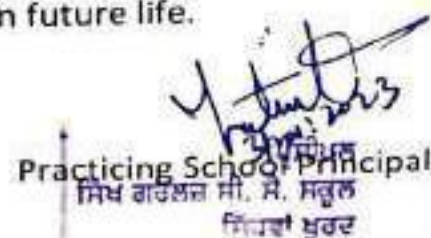 n future life.
2023
ਪ੍ਰਿੰਸੀਪਲ
Practicing School Principal
ਸਿੱਖ ਗਰਲਜ਼ ਸੀ. ਸੈ. ਸਕੂਲ
ਸਿੱਧਵਾਂ ਖੁਰਦ